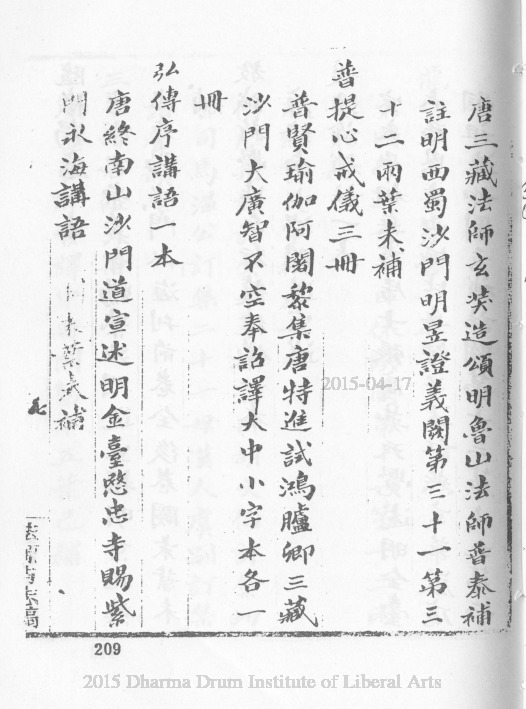 唐三藏法師玄奘造頌明魯山法師普泰補
註明西蜀沙門明昱證義闕第三十一第三
十二兩葉未補
普提心戒儀三冊
普賢瑜伽阿闍黎集唐特進試鴻臚卿三藏
沙門大廣智不空奉詔譯大中小字本各一
冊
弘傳序講語一本
唐終南山沙門道宣述明金臺愍忠寺賜紫
門永海講語 末葉式補
209
2015-04-17
2015 Dharma Drum Institute of Liberal Arts